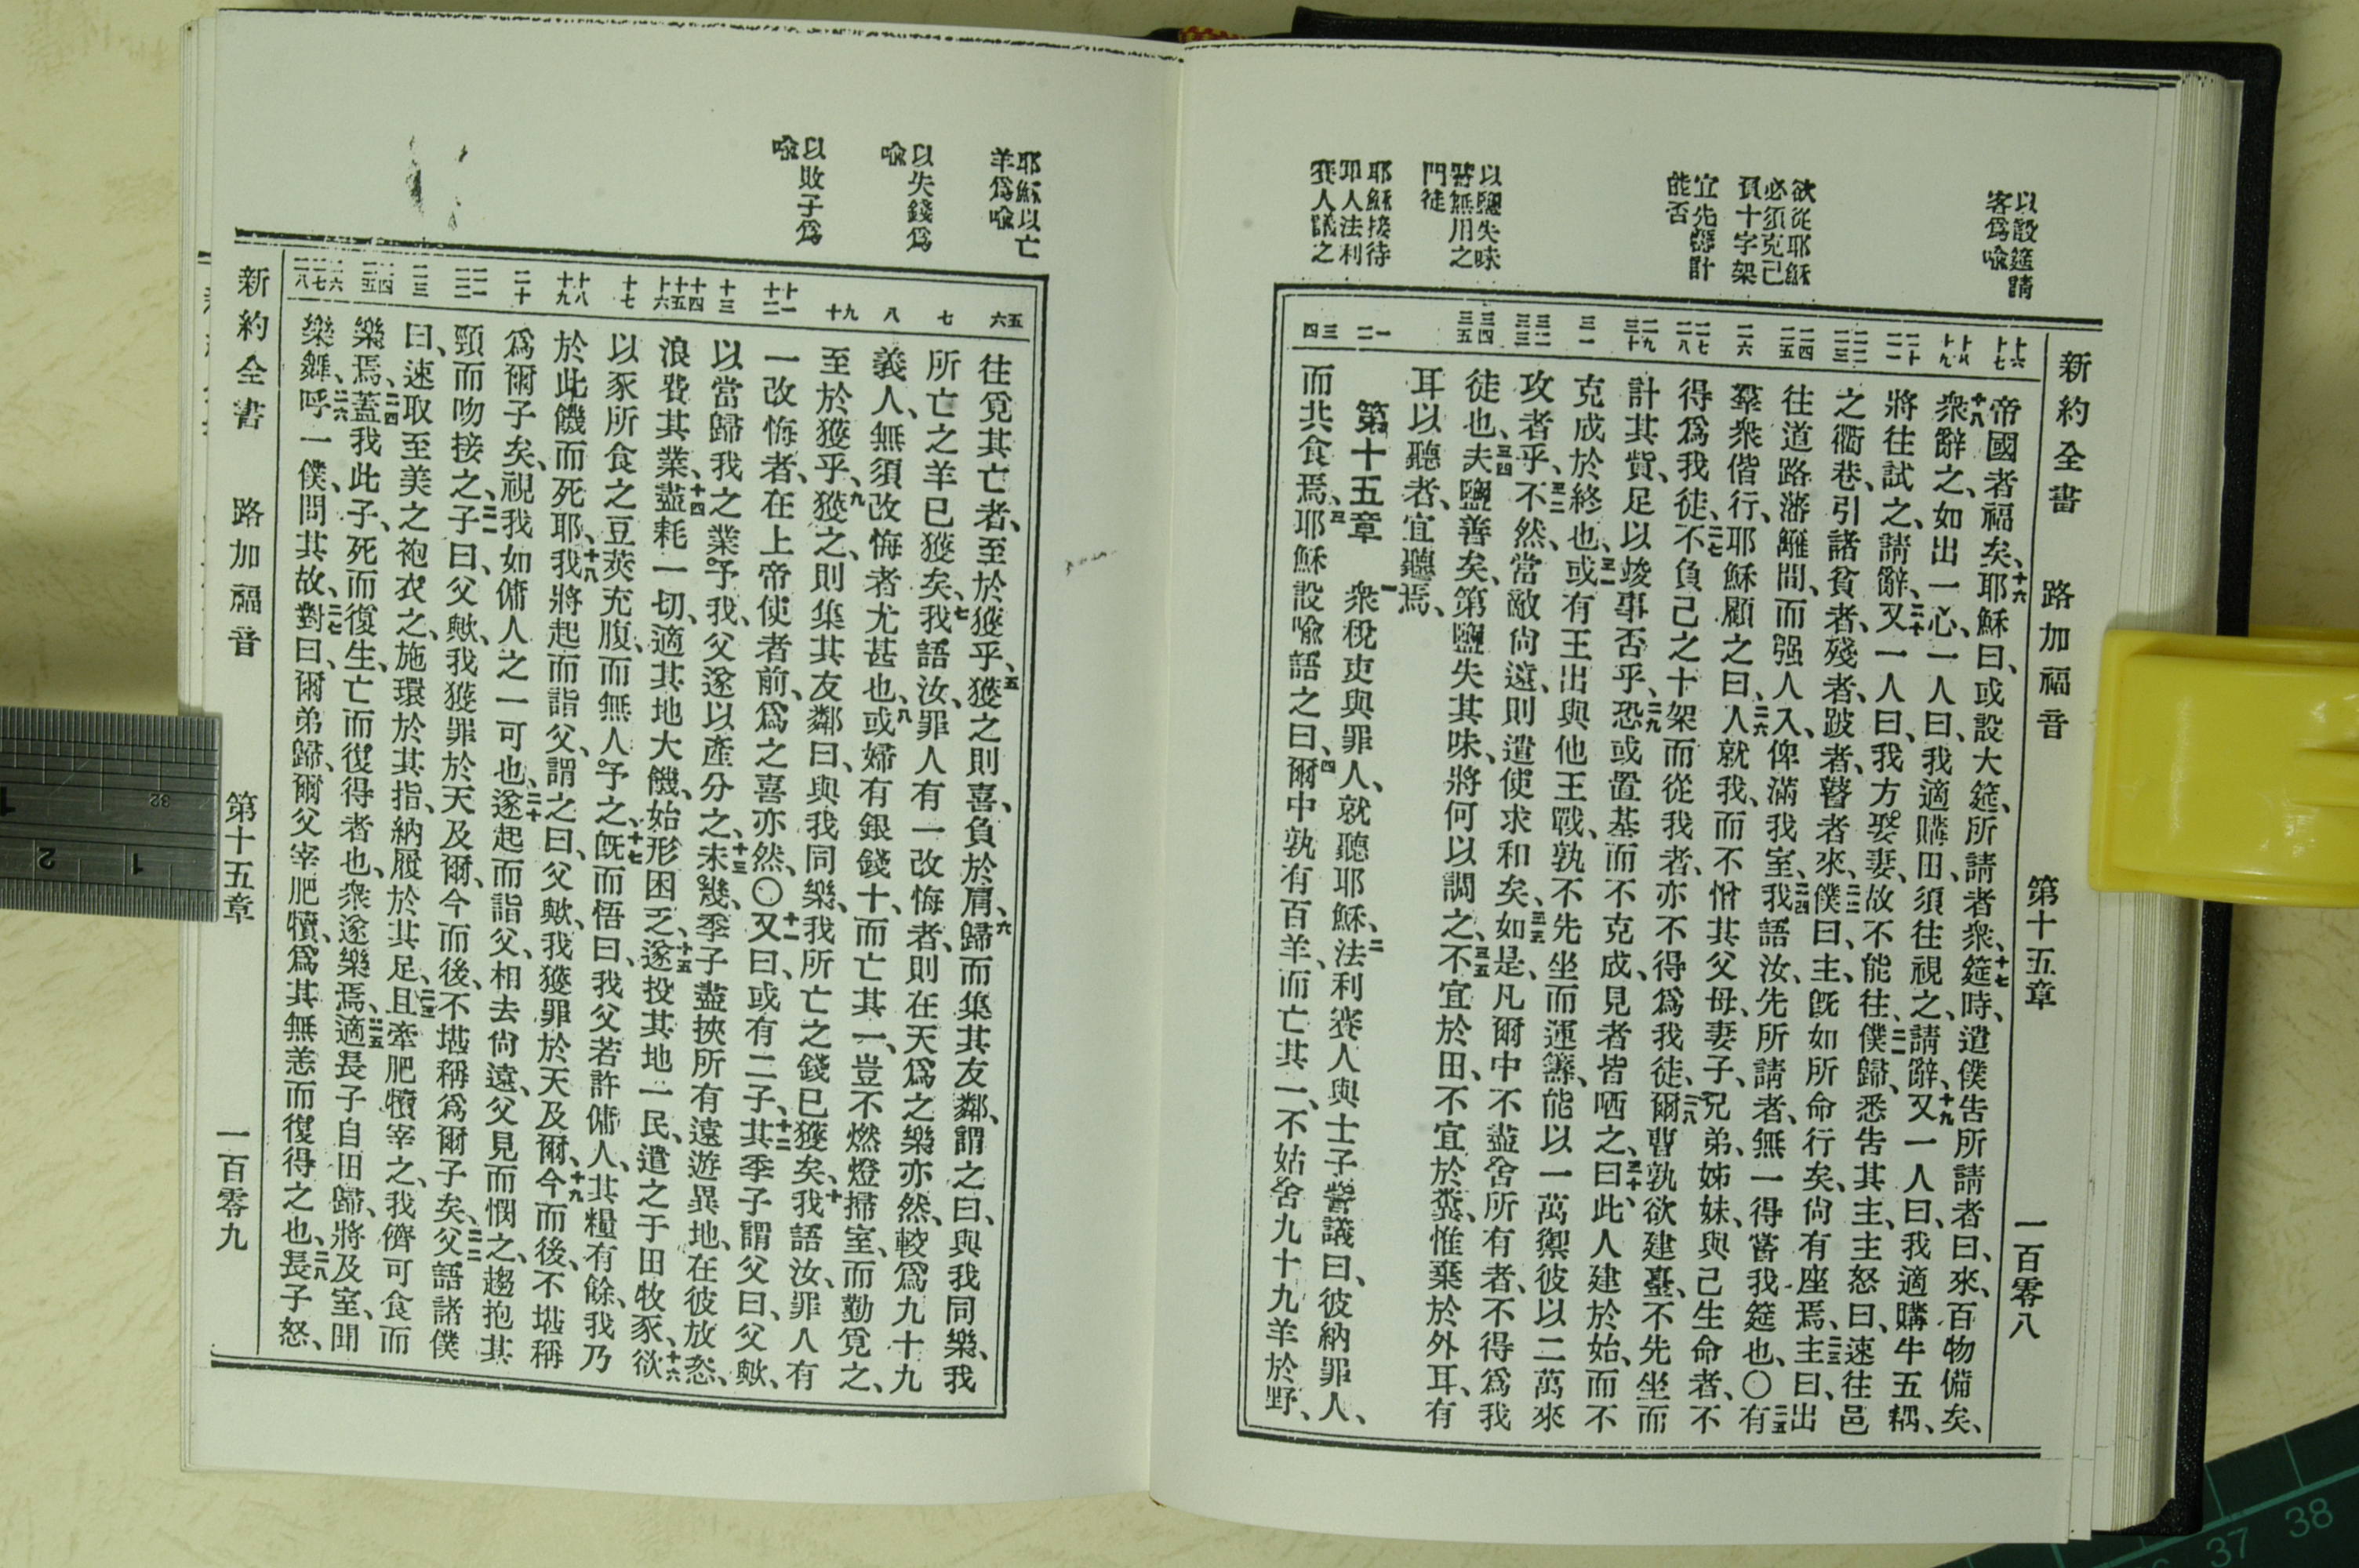 新約全書 路加福音 第十五章 一百零八
以設筵請
客爲喩
欲從耶穌
必須克己
負十字架
宜先籌計
能否
以鹽失味
譬無用之
門徒
耶穌接待
罪人法利
賽人議之
十六 十七
十八 十九
二十 二一
二二 二三
二四 二五
二六
二七 二八
二九 三十
三一
三二 三三
三四 三五
一 二
三 四
帝國者福矣、十六耶穌曰、或設大筵、所請者衆、十七筵時、遣僕告所請者曰、來、百物備矣、
十八衆辭之、如出一心、一人曰、我適購田、須往視之、請辭、十九又一人曰、我適購牛五耦、
將往試之、請辭、二十又一人曰、我方娶妻、故不能往、二一僕歸、悉告其主、主怒曰、速往邑
之衢巷、引諸貧者、殘者、跛者、瞽者來、二二僕曰、主、旣如所命行矣、尙有座焉、二三主曰、出
往道路藩籬間、而强人入、俾滿我室、二四我語汝、先所請者、無一得嘗我筵也、○二五有
羣衆偕行、耶穌顧之曰、二六人就我、而不憎其父母、妻子、兄弟、姊妹、與己生命者、不
得爲我徒、二七不負己之十架而從我者、亦不得爲我徒、二八爾曹孰欲建臺、不先坐而
計其貲、足以竣事否乎、二九恐或置基而不克成、見者皆哂之、三十曰、此人建於始、而不
克成於終也、三一或有王出與他王戰、孰不先坐而運籌、能以一萬禦彼以二萬來
攻者乎、三二不然、當敵尙遠、則遣使求和矣、三三如是、凡爾中不盡舍所有者、不得爲我
徒也、三四夫鹽善矣、第鹽失其味、將何以調之、三五不宜於田、不宜於糞、惟棄於外耳、有
耳以聽者、宜聽焉、
第十五章 一衆稅吏與罪人、就聽耶穌、二法利賽人與士子訾議曰、彼納罪人、
而共食焉、三耶穌設喩語之曰、四爾中孰有百羊、而亡其一、不姑舍九十九羊於野、
耶穌以亡
羊爲喩
以失錢爲
喩
以敗子爲
喩
五 六
七
八
九 十
十一 十二
十三
十四 十五 十六
十七
十八 十九
二十
二一 二二
二三
二四 二五
二六 二七 二八
往覓其亡者、至於獲乎、五獲之則喜、負於肩、六歸而集其友鄰、謂之曰、與我同樂、我
所亡之羊已獲矣、七我語汝、罪人有一改悔者、則在天爲之樂亦然、較爲九十九
義人、無須改悔者尤甚也、八或婦有銀錢十、而亡其一、豈不燃燈掃室、而勤覓之、
至於獲乎、九獲之、則集其友鄰曰、與我同樂、我所亡之錢已獲矣、十我語汝、罪人有
一改悔者、在上帝使者前、爲之喜亦然、○十一又曰、或有二子、十二其季子謂父曰、父歟、
以當歸我之業予我、父遂以產分之、十三未幾、季子盡挾所有遠遊異地、在彼放恣、
浪費其業、十四盡耗一切、適其地大饑、始形困乏、十五遂投其地一民、遣之于田牧豕、十六欲
以豕所食之豆莢充腹、而無人予之、十七旣而悟曰、我父若許傭人、其糧有餘、我乃
於此饑而死耶、十八我將起而詣父、謂之曰、父歟、我獲罪於天及爾、十九今而後、不堪稱
爲爾子矣、視我如傭人之一可也、二十遂起而詣父、相去尙遠、父見而憫之、趨抱其
頸而吻接之、二一子曰、父歟、我獲罪於天及爾、今而後、不堪稱爲爾子矣、二二父語諸僕
曰、速取至美之袍衣之、施環於其指、納履於其足、二三且牽肥犢宰之、我儕可食而
樂焉、二四蓋我此子、死而復生、亡而復得者也、衆遂樂焉、二五適長子自田歸、將及室、聞
樂舞、二六呼一僕、問其故、二七對曰、爾弟歸、爾父宰肥犢、爲其無恙而復得之也、二八長子怒、
新約全書 路加福音 第十五章 一百零九
32
1
2
1
37
38